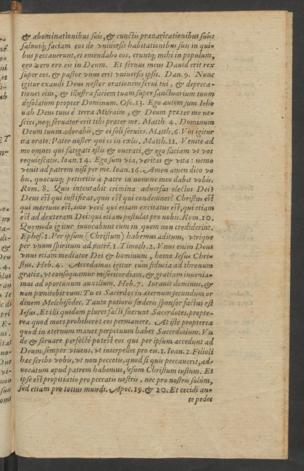 & abominationibus suis, & cunctis prævaricationibus suis:
saluosq; faciam eos de vniuersis habitationibus suis in qui-
bus peccauerunt, et emendabo eos, eruntq; mihi in populum,
ego vero ero eis in Deum. Et seruus meus Dauid erit rex
super eos, & pastor vnus erit vniuersis ipsis. Dan. 9. Nunc
igitur exaudi Deus noster orationem serui tui, & depreca-
tiones eius, & illustra faciem tuam super sanctuarium tuum
desolatum propter Dominum. Ose. 13. Ego autem sum Iehö
uah Deus tuus è terra Mizraim, & Deum præter me ne-
scies, neq; seruator erit tibi præter me. Matth. 4. Dominum
Deum tuum adorabis, & ei soli seruies. Matth. 6. Vos igitur
ita orate. Pater noster qui es in cœlis. Matth. 11. Venite ad
me omnes qui fatigati estis & onerati, & ego faciam vt re
requiescatis. Ioan. 14. Ego sum via, veritas & vita: nemo
venit ad patrem nisi per me. Ioan. 16. Amen amen dico vo
bis, quæcunq; petieritis à patre in nomine meo dabit vobis.
Rom. 8. Quis intentabit crimina aduersus electos Dei?
Deus est qui iustificat, quis est qui condemnet? Christus est
qui mortuus est, imò verò qui etiam excitatus est, qui etiam
est ad dexteram Dei: qui etiam postulat pro nobis. Rom. 10.
Quomodo igitur inuocabunt eum in quem non crediderint.
Ephes. 2. Per ipsum (Christum) habemus aditum, vtrique
per vnum spiritum ad patrẽ. 1. Timoth. 2. Vnus enim Deus
vnus etiam mediator Dei & hominum, homo Iesus Chri-
stus. Heb. 4. Accedamus igitur cum fiducia ad thronum
gratiæ, vt consequamur misericordiam, & gratiam inuenia-
mus ad oportunum auxilium. Heb. 7. Iurauit dominus, &
non pœnitebit eum: Tu es Sacerdos in æternum secundum or
dinem Melchisedec. Tanto potioris fœderis sponsor factus est
Iesus. Et illi quidem plures facti fuerunt Sacerdotes, propte-
rea quod mors prohiberet eos permanere. At iste propterea
quod in æternum manet perpetuum habet Sacerdotium. Vn
de & seruare perfectè potest eos qui per ipsum accedunt ad
Deum, semper viuens, vt interpellet pro eis. 1. Ioan. 2. Filioli
hæc scribo vobis, vt non peccetis, quod si quis peccauerit, ad-
uocatum apud patrem habemus, Iesum Christum iustum. Et
ipse est propitiatio pro peccatis nostris, nec pro nostris solùm,
sed etiam pro totius mundi. Apoc. 19. & 20. Et cecidi an-
te pedes